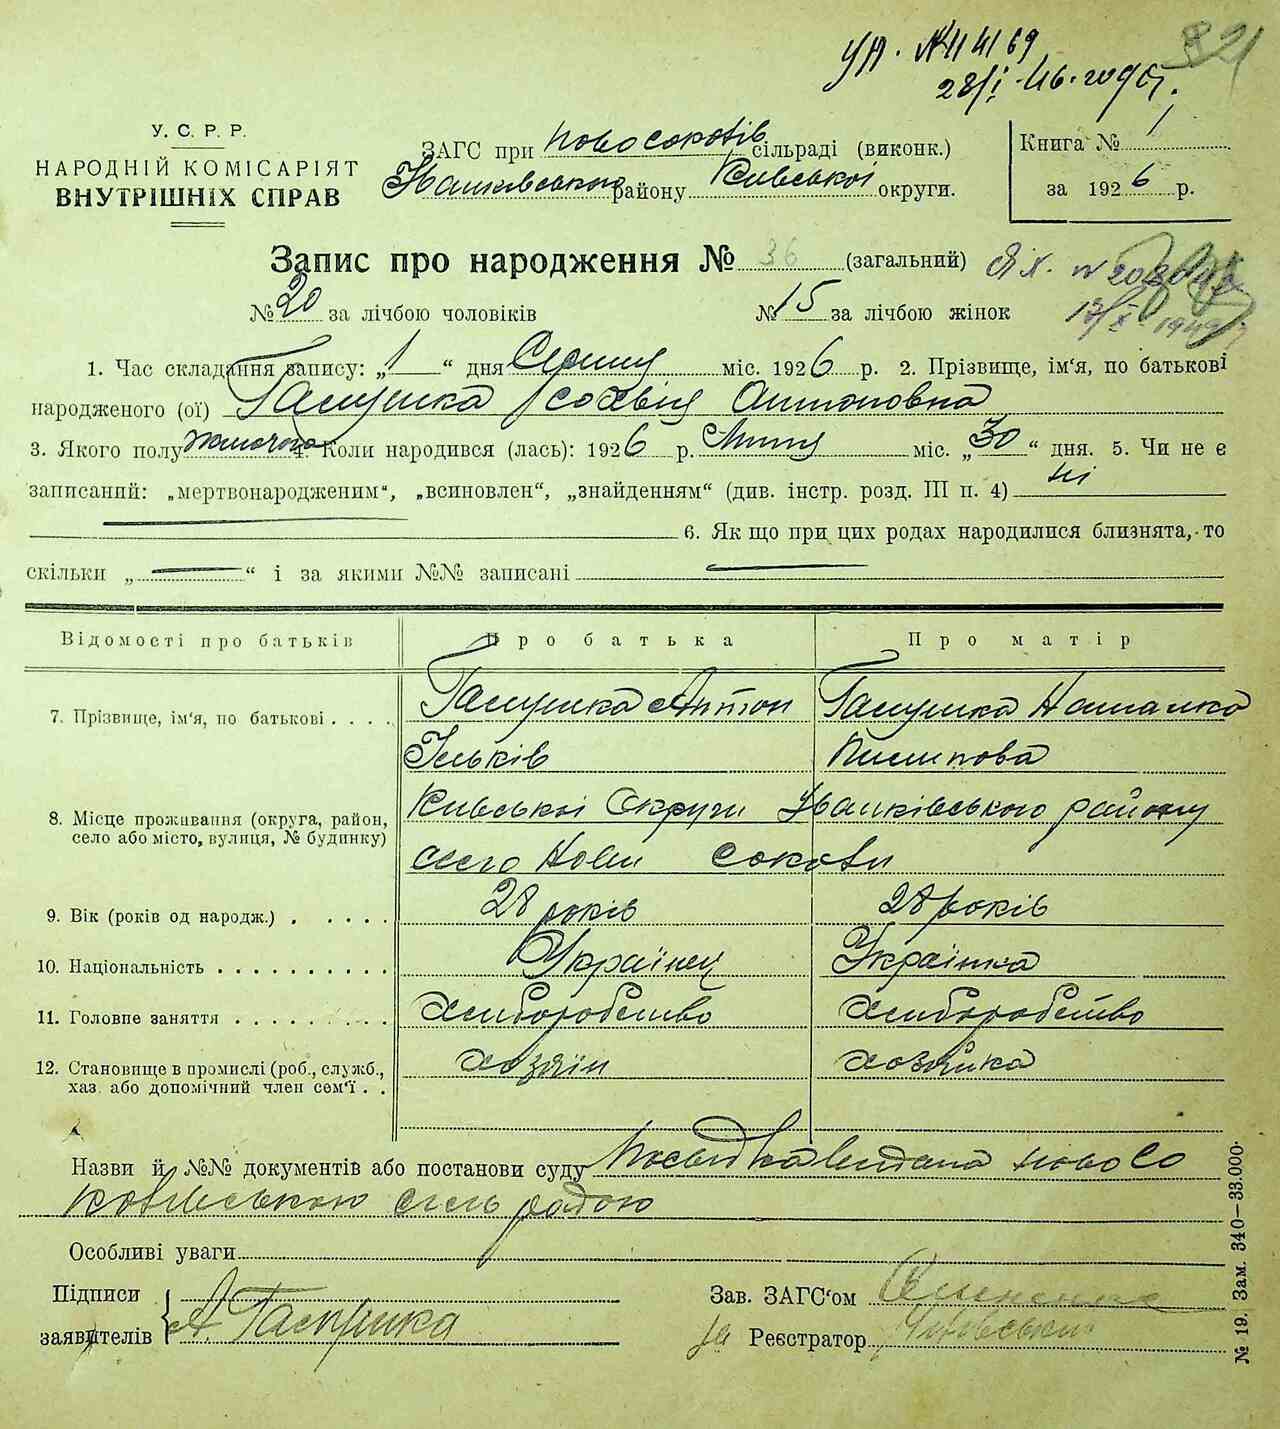 УА. № 114169
28/I 46. году.
321
У. С. Р. Р.
НАРОДНІЙ КОМІСАРІЯТ
ВНУТРІШНІХ СПРАВ
ЗАГС при Новосоковів сільраді (виконк.)
Іванківського району Київської округи.
Книга № 1
за 1926 р.
Запис про народження № 36 (загальний)
№ 20 за лічбою чоловіків № 15 за лічбою жінок
1. Час складання запису: „1“ дня Серпня міс. 1926 р. 2. Прізвище, ім‘я, по батькові
народженого (ої) Галушка Софвія Антоновна
3. Якого полу жіночого 4. Коли народився (лась): 1926 р. Липня міс. „30“ дня. 5. Чи не є
записаний: „мертвонародженим“, „всиновлен“, „знайденням“ (див. інстр. розд. III п. 4) ні
6. Як що при цих родах народилися близнята, то
скільки „ “ і за якими №№ записані
Відомості про батьків Про батька Про матір
7. Прізвище, ім‘я, по батькові . . . . Галушка Антон Галушка Наталка
Ільків Пилипова
8. Місце проживання (округа, район, село або місто, вулиця, № будинку) Київської Округи Іванківського району
село Нови Сокови
9. Вік (років од народж.) . . . . . 28 років 28 років
10. Національність . . . . . . . . . . Українец Українка
11. Головне заняття . . . . . . . . . Хліборобство Хліборобство
12. Становище в промислі (роб., служб., хаз. або допомічний член сем‘ї . . хозяїн хозяйка
Назви й №№ документів або постанови суду Посвідка видана Новосо
ковівською сель радою
Особливі уваги
Підписи
заявителів А. Галушка
Зав. ЗАГС‘ом
Реєстратор
№ 19. Зам. 340—33.000.